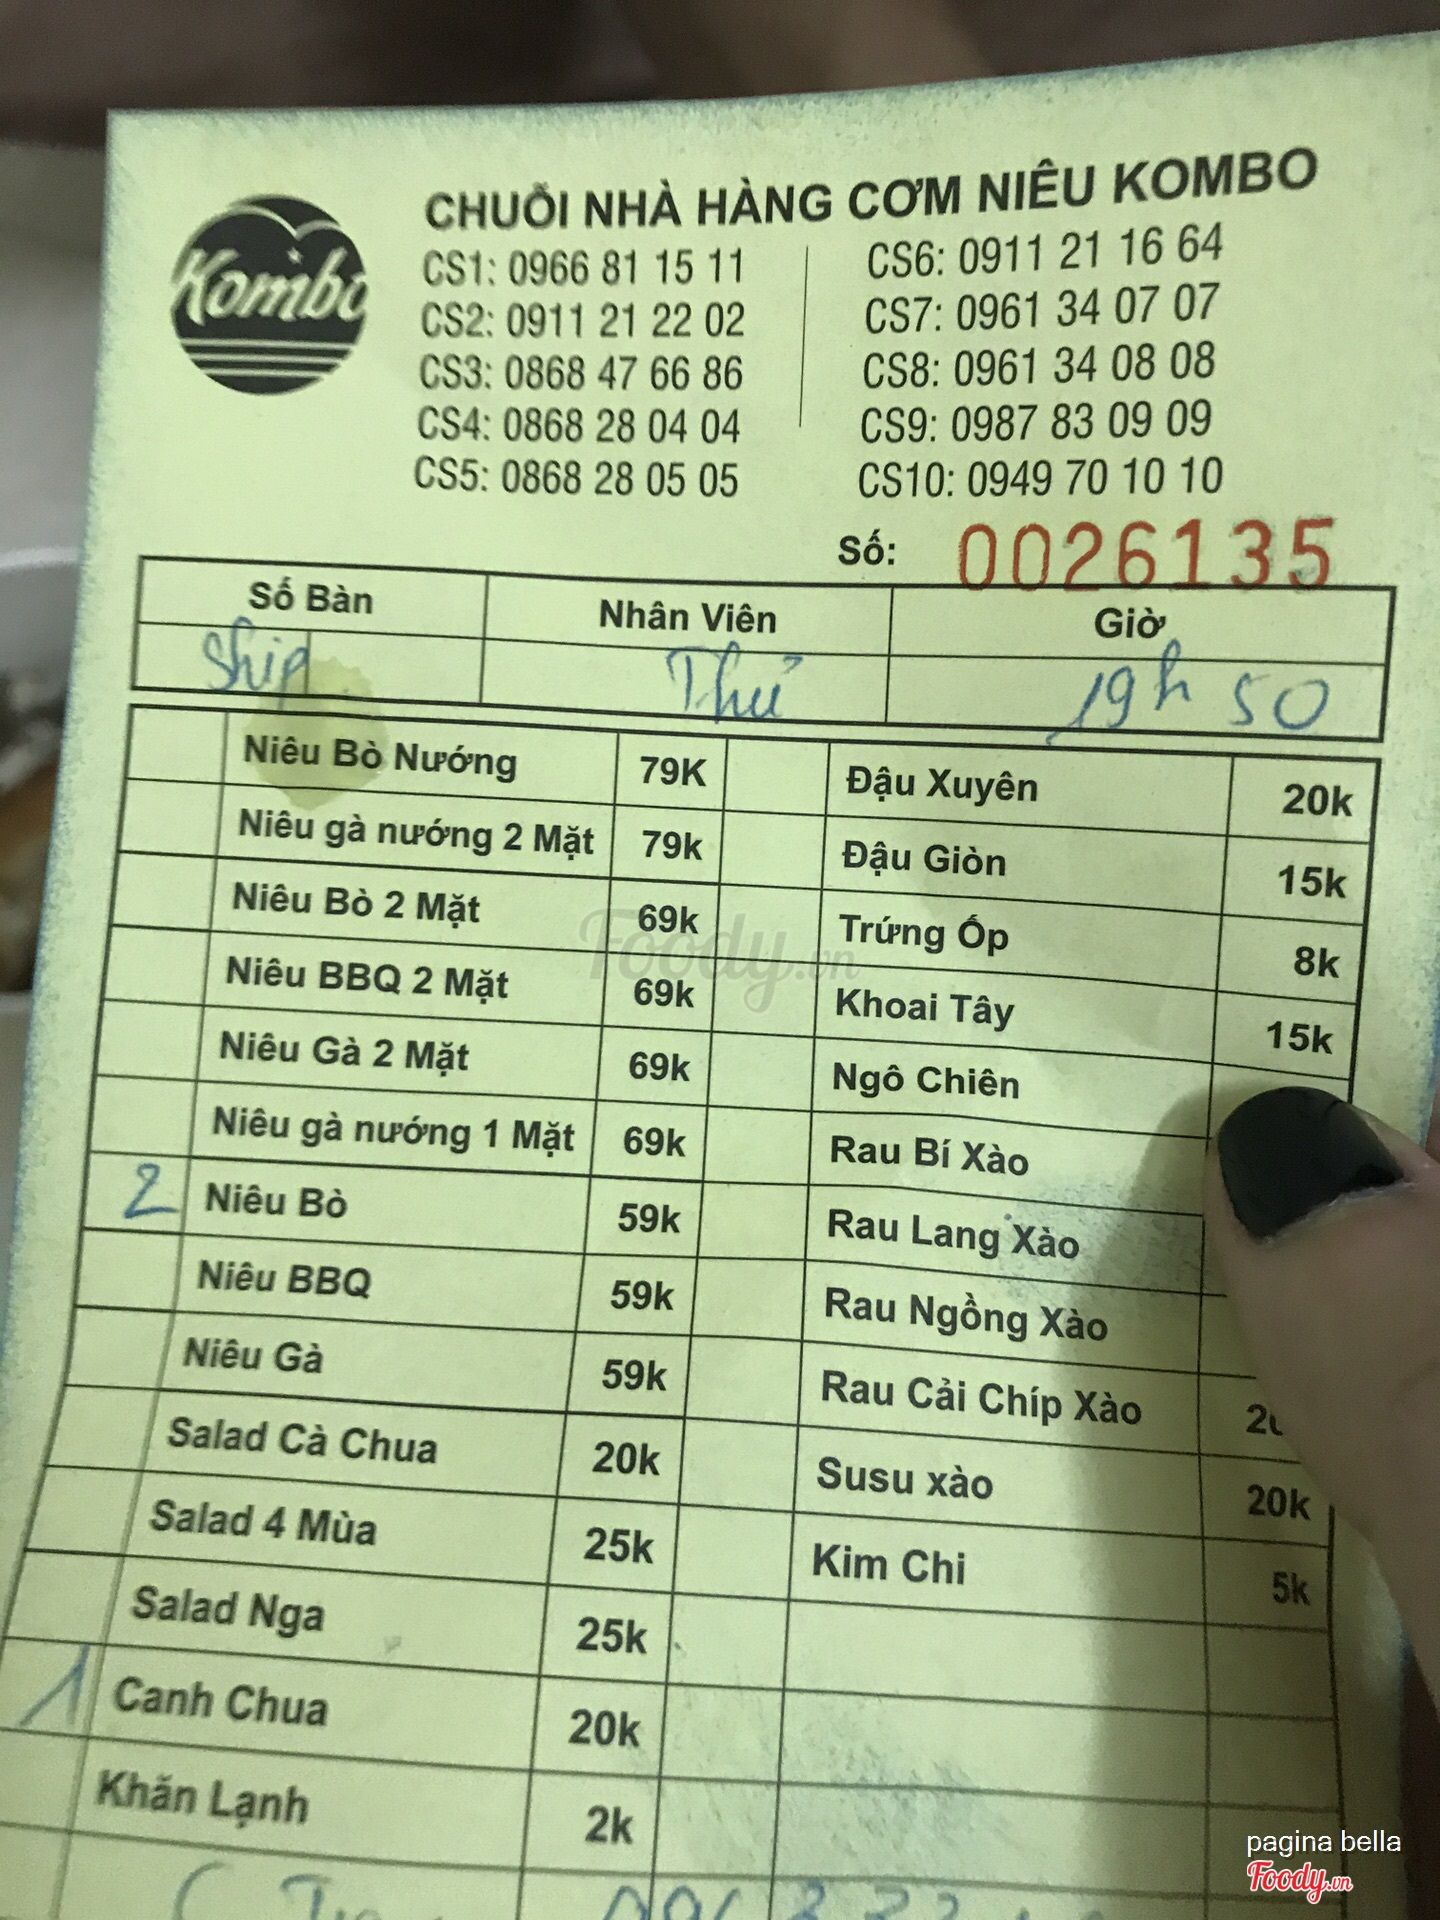 Kombo
CHUỖI NHÀ HÀNG CƠM NIÊU KOMBO
CS1: 0966 81 15 11
CS2: 0911 21 22 02
CS3: 0868 47 66 86
CS4: 0868 28 04 04
CS5: 0868 28 05 05
CS6: 0911 21 16 64
CS7: 0961 34 07 07
CS8: 0961 34 08 08
CS9: 0987 83 09 09
CS10: 0949 70 10 10
Số: 0026135
Số Bàn Nhân Viên Giờ
Ship Thư 19h 50
Niêu Bò Nướng 79K Đậu Xuyên 20k
Niêu gà nướng 2 Mặt 79k Đậu Giòn 15k
Niêu Bò 2 Mặt 69k Trứng Ốp 8k
Niêu BBQ 2 Mặt 69k Khoai Tây 15k
Niêu Gà 2 Mặt 69k Ngô Chiên
Niêu gà nướng 1 Mặt 69k Rau Bí Xào
2 Niêu Bò 59k Rau Lang Xào
Niêu BBQ 59k Rau Ngồng Xào
Niêu Gà 59k Rau Cải Chíp Xào
Salad Cà Chua 20k Susu xào 20k
Salad 4 Mùa 25k Kim Chi 5k
Salad Nga 25k
1 Canh Chua 20k
Khăn Lạnh 2k
Foody.vn
pagina bella
Foody.vn